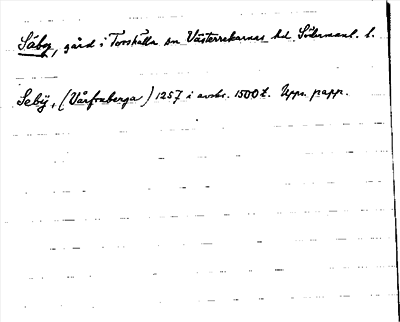 Säby, gård i Torshälla sn Västerrekarnes hd. Södermanl. l.
Sebÿ, (Vårfruberga) 1257 i avskr. 1500 t. Upps. papp.